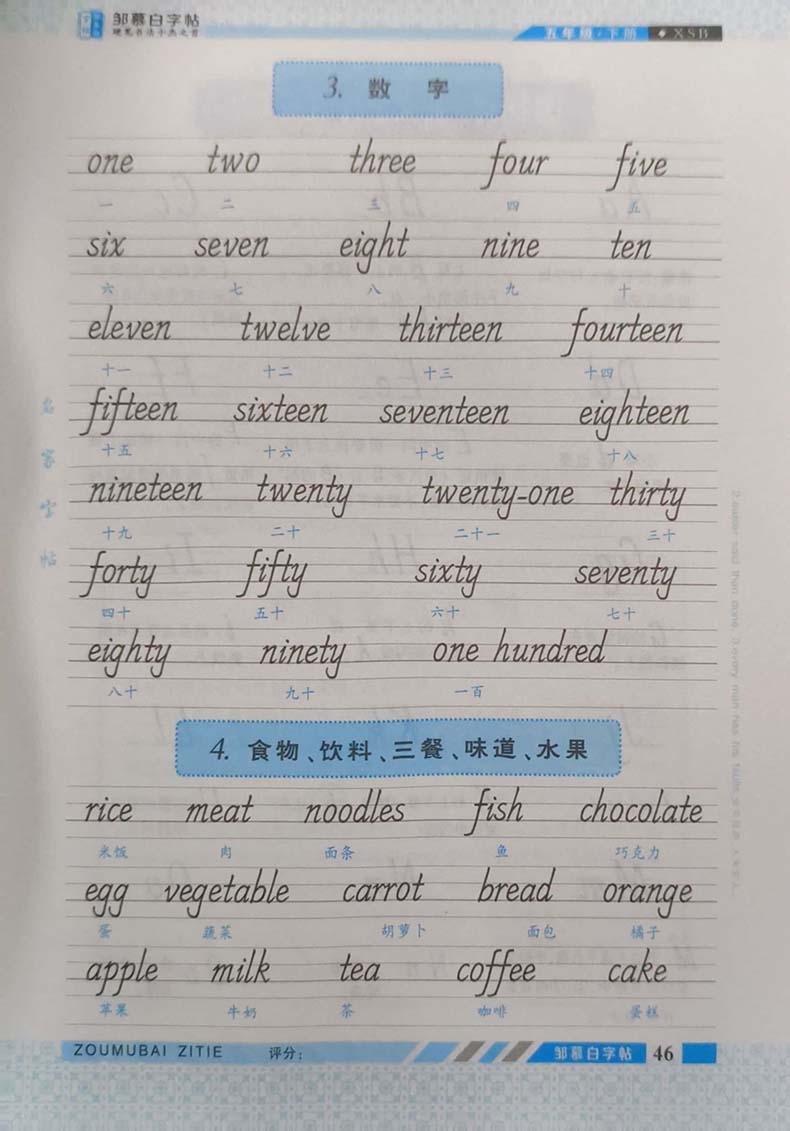 邹慕白字帖
硬笔书法小杰之首
五年级·下册 XSB
3. 数 字
one two three four five
一 二 三 四 五
six seven eight nine ten
六 七 八 九 十
eleven twelve thirteen fourteen
十一 十二 十三 十四
fifteen sixteen seventeen eighteen
十五 十六 十七 十八
nineteen twenty twenty-one thirty
十九 二十 二十一 三十
forty fifty sixty seventy
四十 五十 六十 七十
eighty ninety one hundred
八十 九十 一百
4. 食物、饮料、三餐、味道、水果
rice meat noodles fish chocolate
米饭 肉 面条 鱼 巧克力
egg vegetable carrot bread orange
蛋 蔬菜 胡萝卜 面包 橘子
apple milk tea coffee cake
苹果 牛奶 茶 咖啡 蛋糕
名家字帖
ZOUMUBAI ZITIE 评分: 邹慕白字帖 46